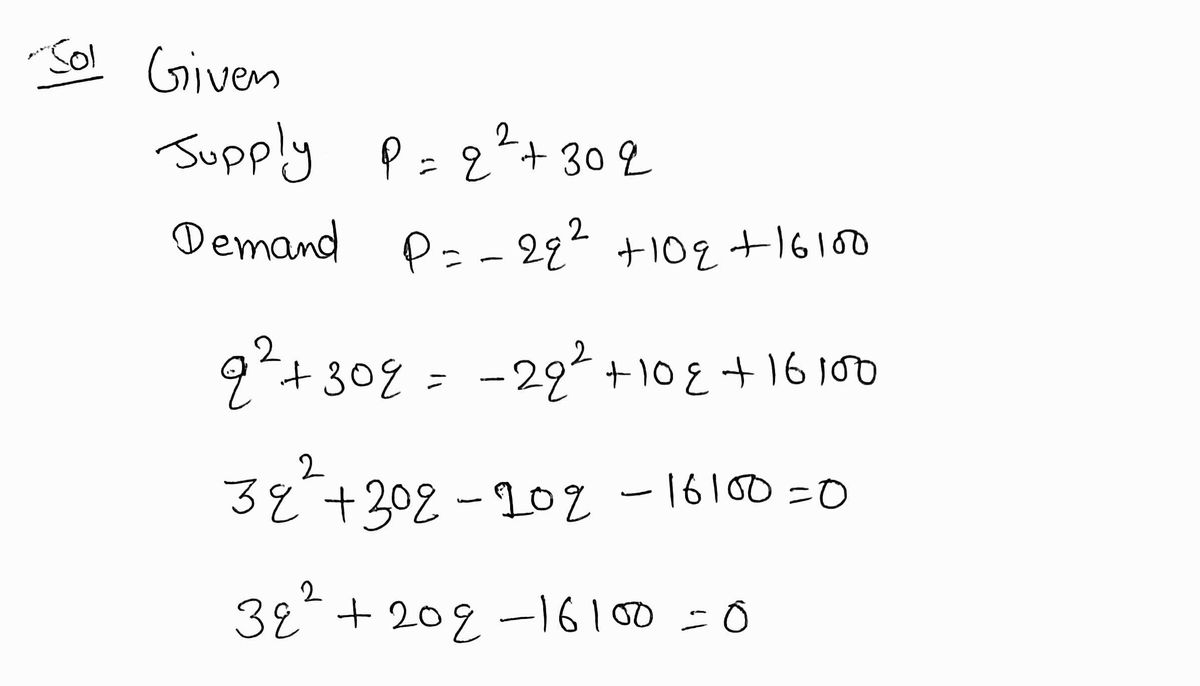 Sol Given
Supply P = q² + 30q
Demand P = -2q² + 10q + 16100
q² + 30q = -2q² + 10q + 16100
3q² + 30q - 10q - 16100 = 0
3q² + 20q - 16100 = 0